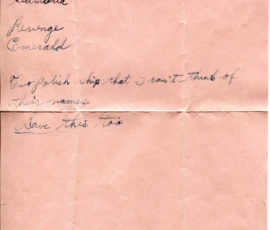 Revenge
Emerald
Two Polish ship that I can't think of
their names
Save this too